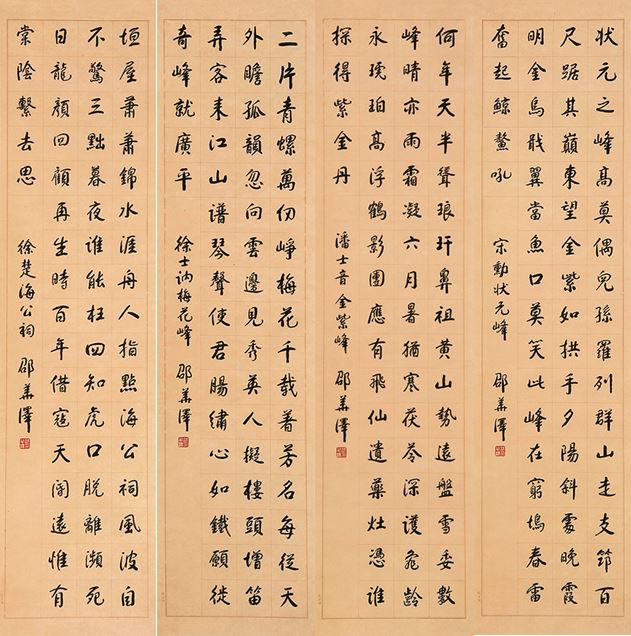 状元之峰高莫偶兒孫羅列群山走支筇百
尺踞其巔東望金紫如拱手夕陽斜處晚霞
明金烏戢翼當魚口莫笑此峰在窮塢春雷
奮起鯨鰲吼
宋勳状元峰 邵華澤
何年天半聳琅玕鼻祖黄山勢遠盤雪委數
峰晴亦雨霜凝六月暑猶寒茯苓深護龜齡
永琥珀高浮鶴影團應有飛仙遺藥灶憑誰
探得紫金丹
潘士音金紫峰 邵華澤
二片青螺萬仞崢梅花千載著芳名每從天
外瞻孤韻忽向雲邊見秀英人擬樓頭增笛
弄客来江山譜琴聲使君腸繡心如鐵願徙
奇峰就廣平
徐士訥梅花峰 邵華澤
垣屋蕭蕭錦水涯舟人指點海公祠風波自
不驚三黜暮夜誰能枉四知虎口脱離瀕死
日龍顏回顧再生時百年借寇天閽遠惟有
棠陰繫去思
徐楚海公祠 邵華澤